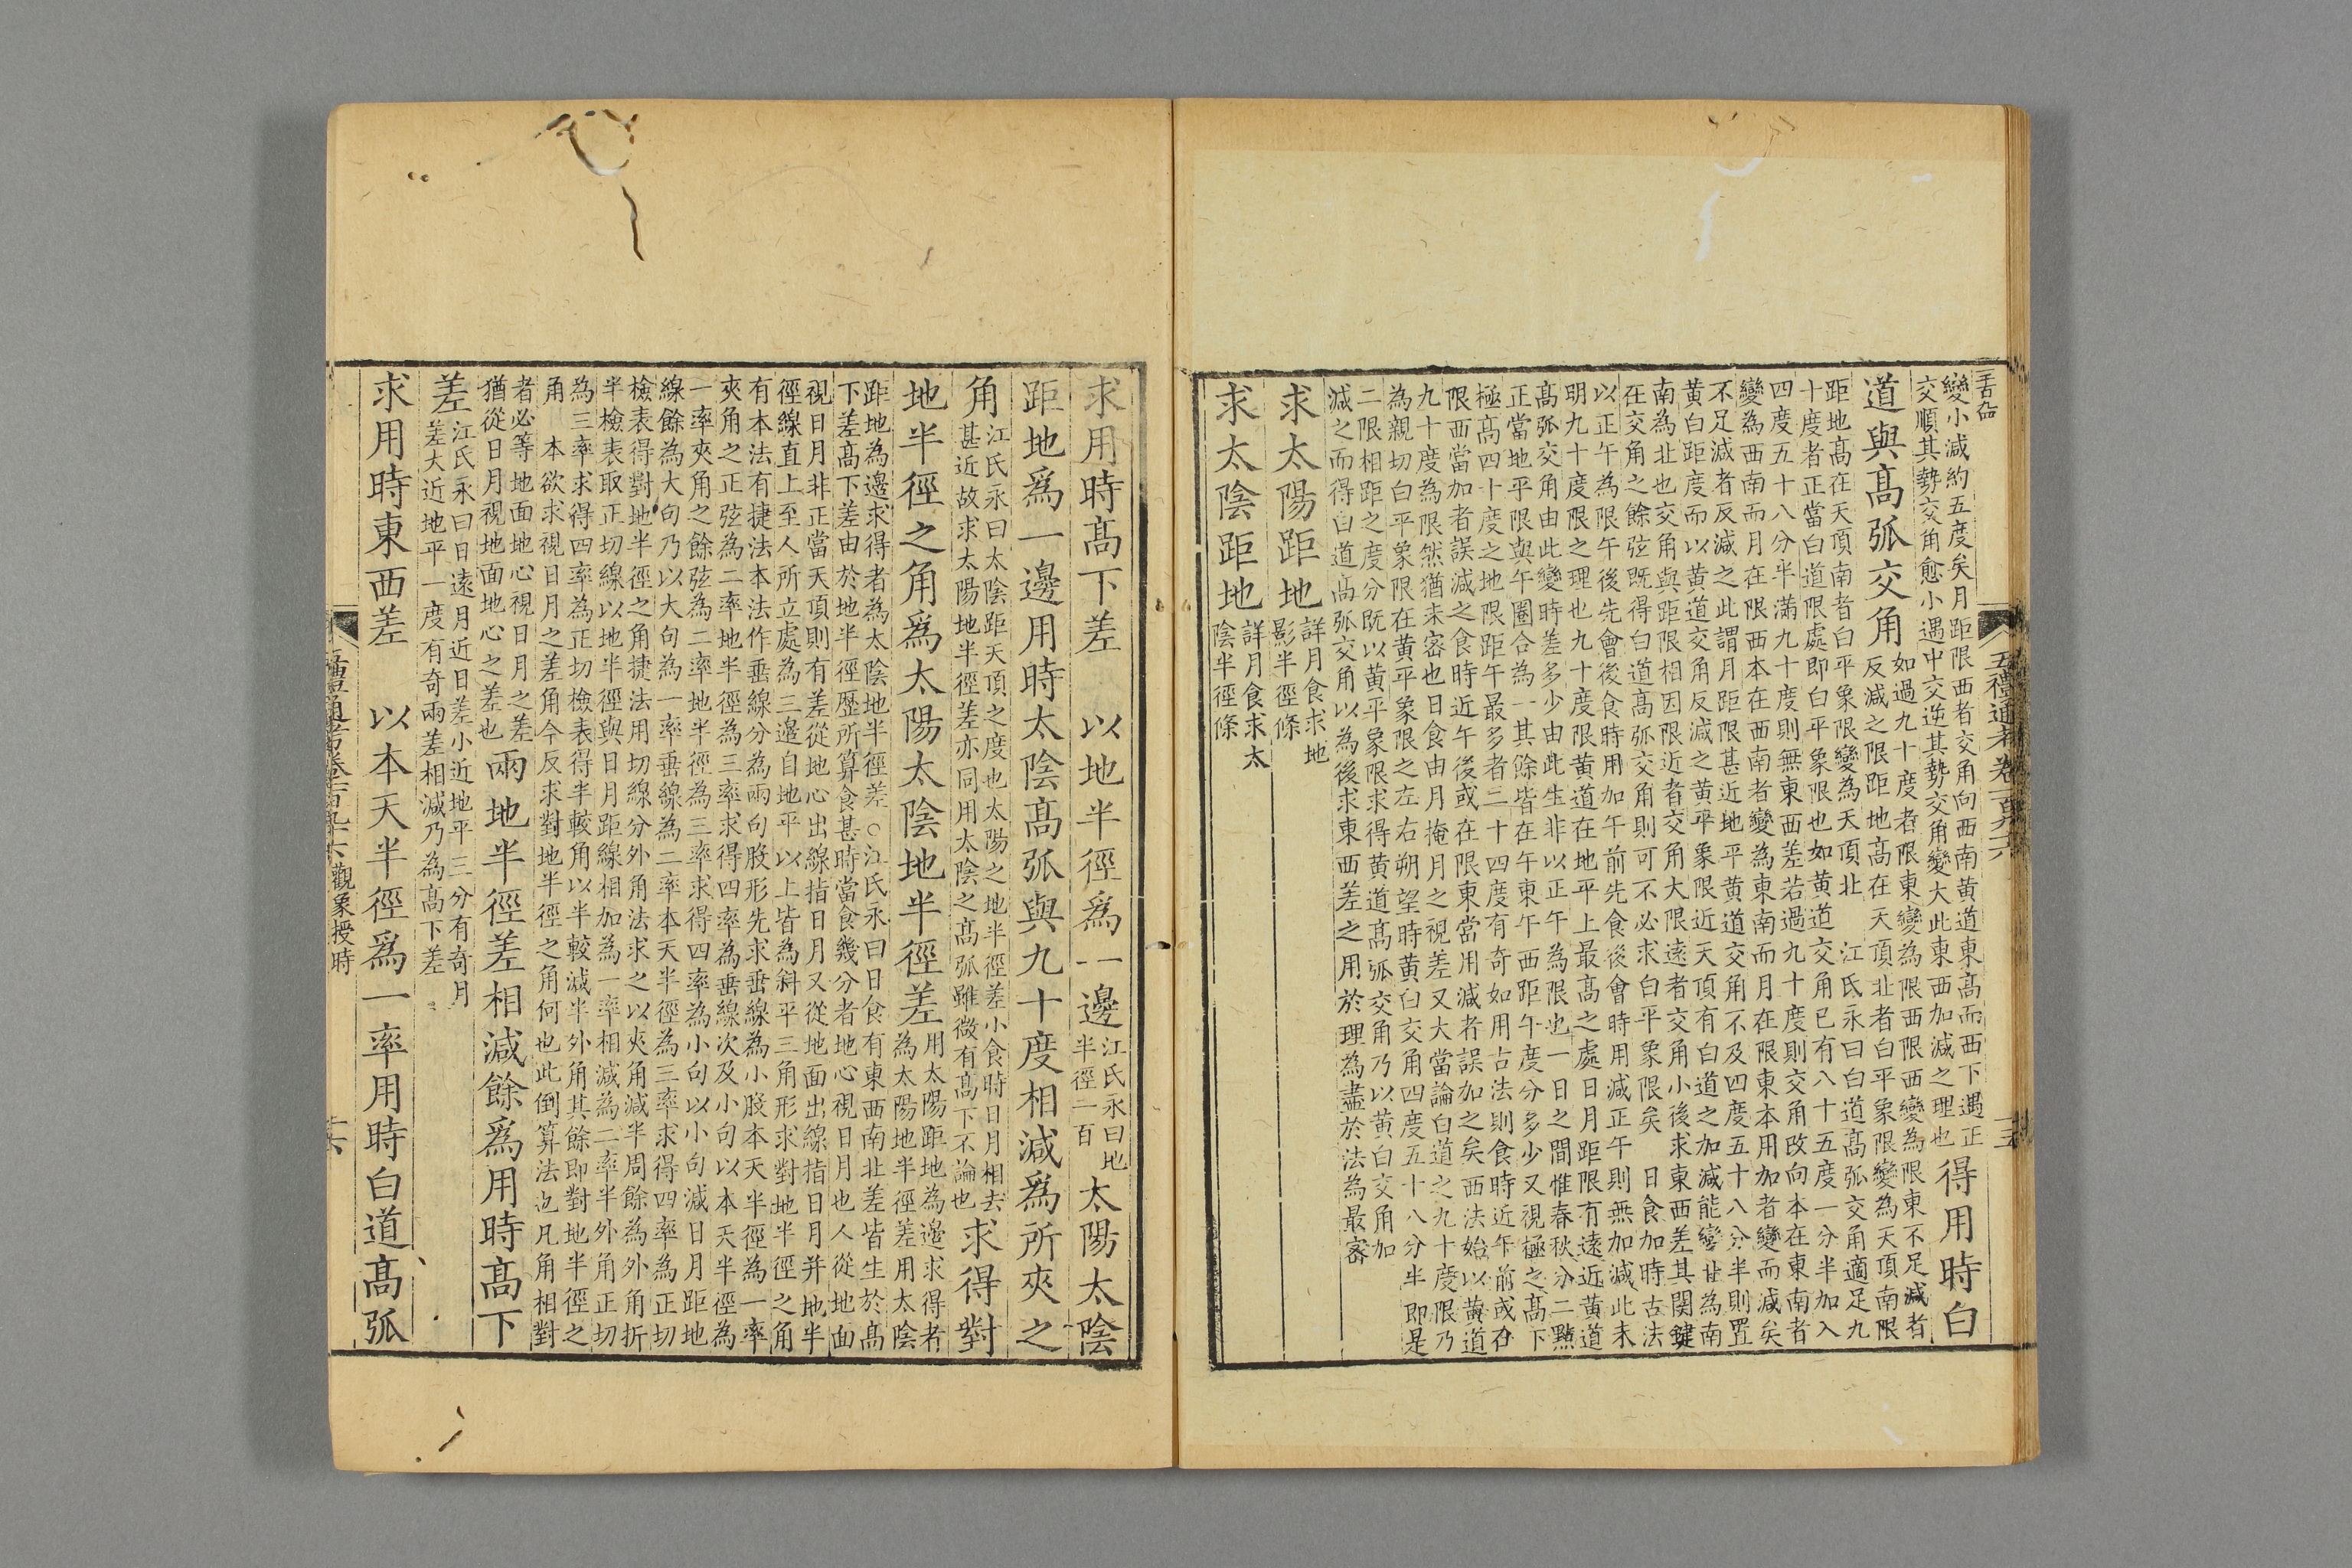 五禮通考卷一百九十六
十五
變小減約五度矣月距限西者交角向西南黄道東髙而西下遇正
交順其勢交角愈小遇中交逆其勢交角變大此東西加減之理也
得用時白
道與髙弧交角
如過九十度者限東變為限西限西變為限東不足減者
反減之限距地髙在天頂北者白平象限變為天頂南限
距地髙在天頂南者白平象限變為天頂北
江氏永曰白道髙弧交角適足九
十度者正當白道限處即白平象限也如黄道交角已有八十五度一分半加入
四度五十八分半滿九十度則無東西差若過九十度則交角改向本在東南者
變為西南而月在限西本在西南者變為東南而月在限東本用加者變而減矣
不足減者反減之此謂月距限甚近地平黄道交角不及四度五十八分半則置
黄白距度而以黄道交角反減之黄平象限近天頂有白道之加減能變北為南
南為北也交角與距限相因限近者交角大限遠者交角小後求東西差其関鍵
在交角之餘弦既得白道髙弧交角則可不必求白平象限矣
日食加時古法
以正午為限午後先會後食時用加午前先食後會時用減正午則無加減此未
明九十度限之理也九十度限黄道在地平上最髙之處日月距限有遠近黄道
髙弧交角由此變時差多少由此生非以正午為限也一日之間惟春秋分二㸃
正當地平限與午圈合為一其餘皆在午東午西距午度分多少又視極之髙下
極髙四十度之地限距午最多者二十四度有奇如用古法則食時近午前或在
限西當加者誤減之食時近午後或在限東當用減者誤加之矣西法始以黄道
九十度為限然猶未密也日食由月掩月之視差又大當論白道之九十度限乃
為親切白平象限在黄平象限之左右朔望時黄白交角四度五十八分半即是
二限相距之度分既以黄平象限求得黄道髙弧交角乃以黄白交角加
減之而得白道髙弧交角以為後求東西差之用於理為盡於法為最審
求太陽距地
詳月食求地
影半徑條
求太陰距地
詳月食求太
陰半徑條
求用時髙下差　以地半徑爲一邊
江氏永曰地
半徑一百
太陽太陰
距地爲一邊用時太陰髙弧與九十度相減爲所夾之
角
江氏永曰太陰距天頂之度也太陽之地半徑差小食時日月相去
甚近故求太陽地半徑差亦同用太陰之髙弧雖微有髙下不論也
求得對
地半徑之角爲太陽太陰地半徑差
用太陽距地為邊求得者
為太陽地半徑差用太陰
距地為邊求得者為太陰地半徑差○江氏永曰日食有東西南北差皆生於髙
下差髙下差由於地半徑歴所算食甚時當食幾分者地心視日月也人從地面
視日月非正當天頂則有差從地心出線指日月又從地面出線指日月并地半
徑線直上至人所立處為三邉自地平以上皆為斜平三角形求對地半徑之角
有本法有捷法本法作垂線分為兩句股形先求垂線為小股本天半徑為一率
夾角之正弦為二率地半徑為三率求得四率為垂線次及小句以本天半徑為
一率夾角之餘弦為二率地半徑為三率求得四率為小句以小句減日月距地
線餘為大句乃以大句為一率垂線為二率本天半徑為三率求得四率為正切
檢表得對地半徑之角捷法用切線分外角法求之以夾角減半周餘為外角折
半檢表取正切線以地半徑與日月距線相加為一率相減為二率半外角正切
為三率求得四率為正切檢表得半較角以半較減半外角其餘即對地半徑之
角　本欲求視日月之差角今反求對地半徑之角何也此倒算法也凡角相對
者必等地面地心視日月之差
猶從日月視地面地心之差也
兩地半徑差相減餘爲用時髙下
差
江氏永曰日逺月近日差小近地平三分有奇月
差大近地平一度有奇兩差相減乃為髙下差
求用時東西差　以本天半徑爲一率用時白道髙弧
觀象授時
十六